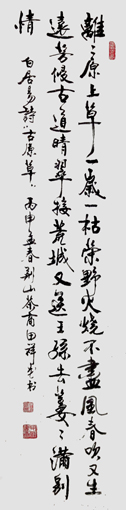 離〻原上草一歲一枯榮野火燒不盡風春吹又生
遠芳侵古道晴翠接荒城又送王孫去萋〻滿別
情
白居易詩古原草丙申孟春荆山田祥書